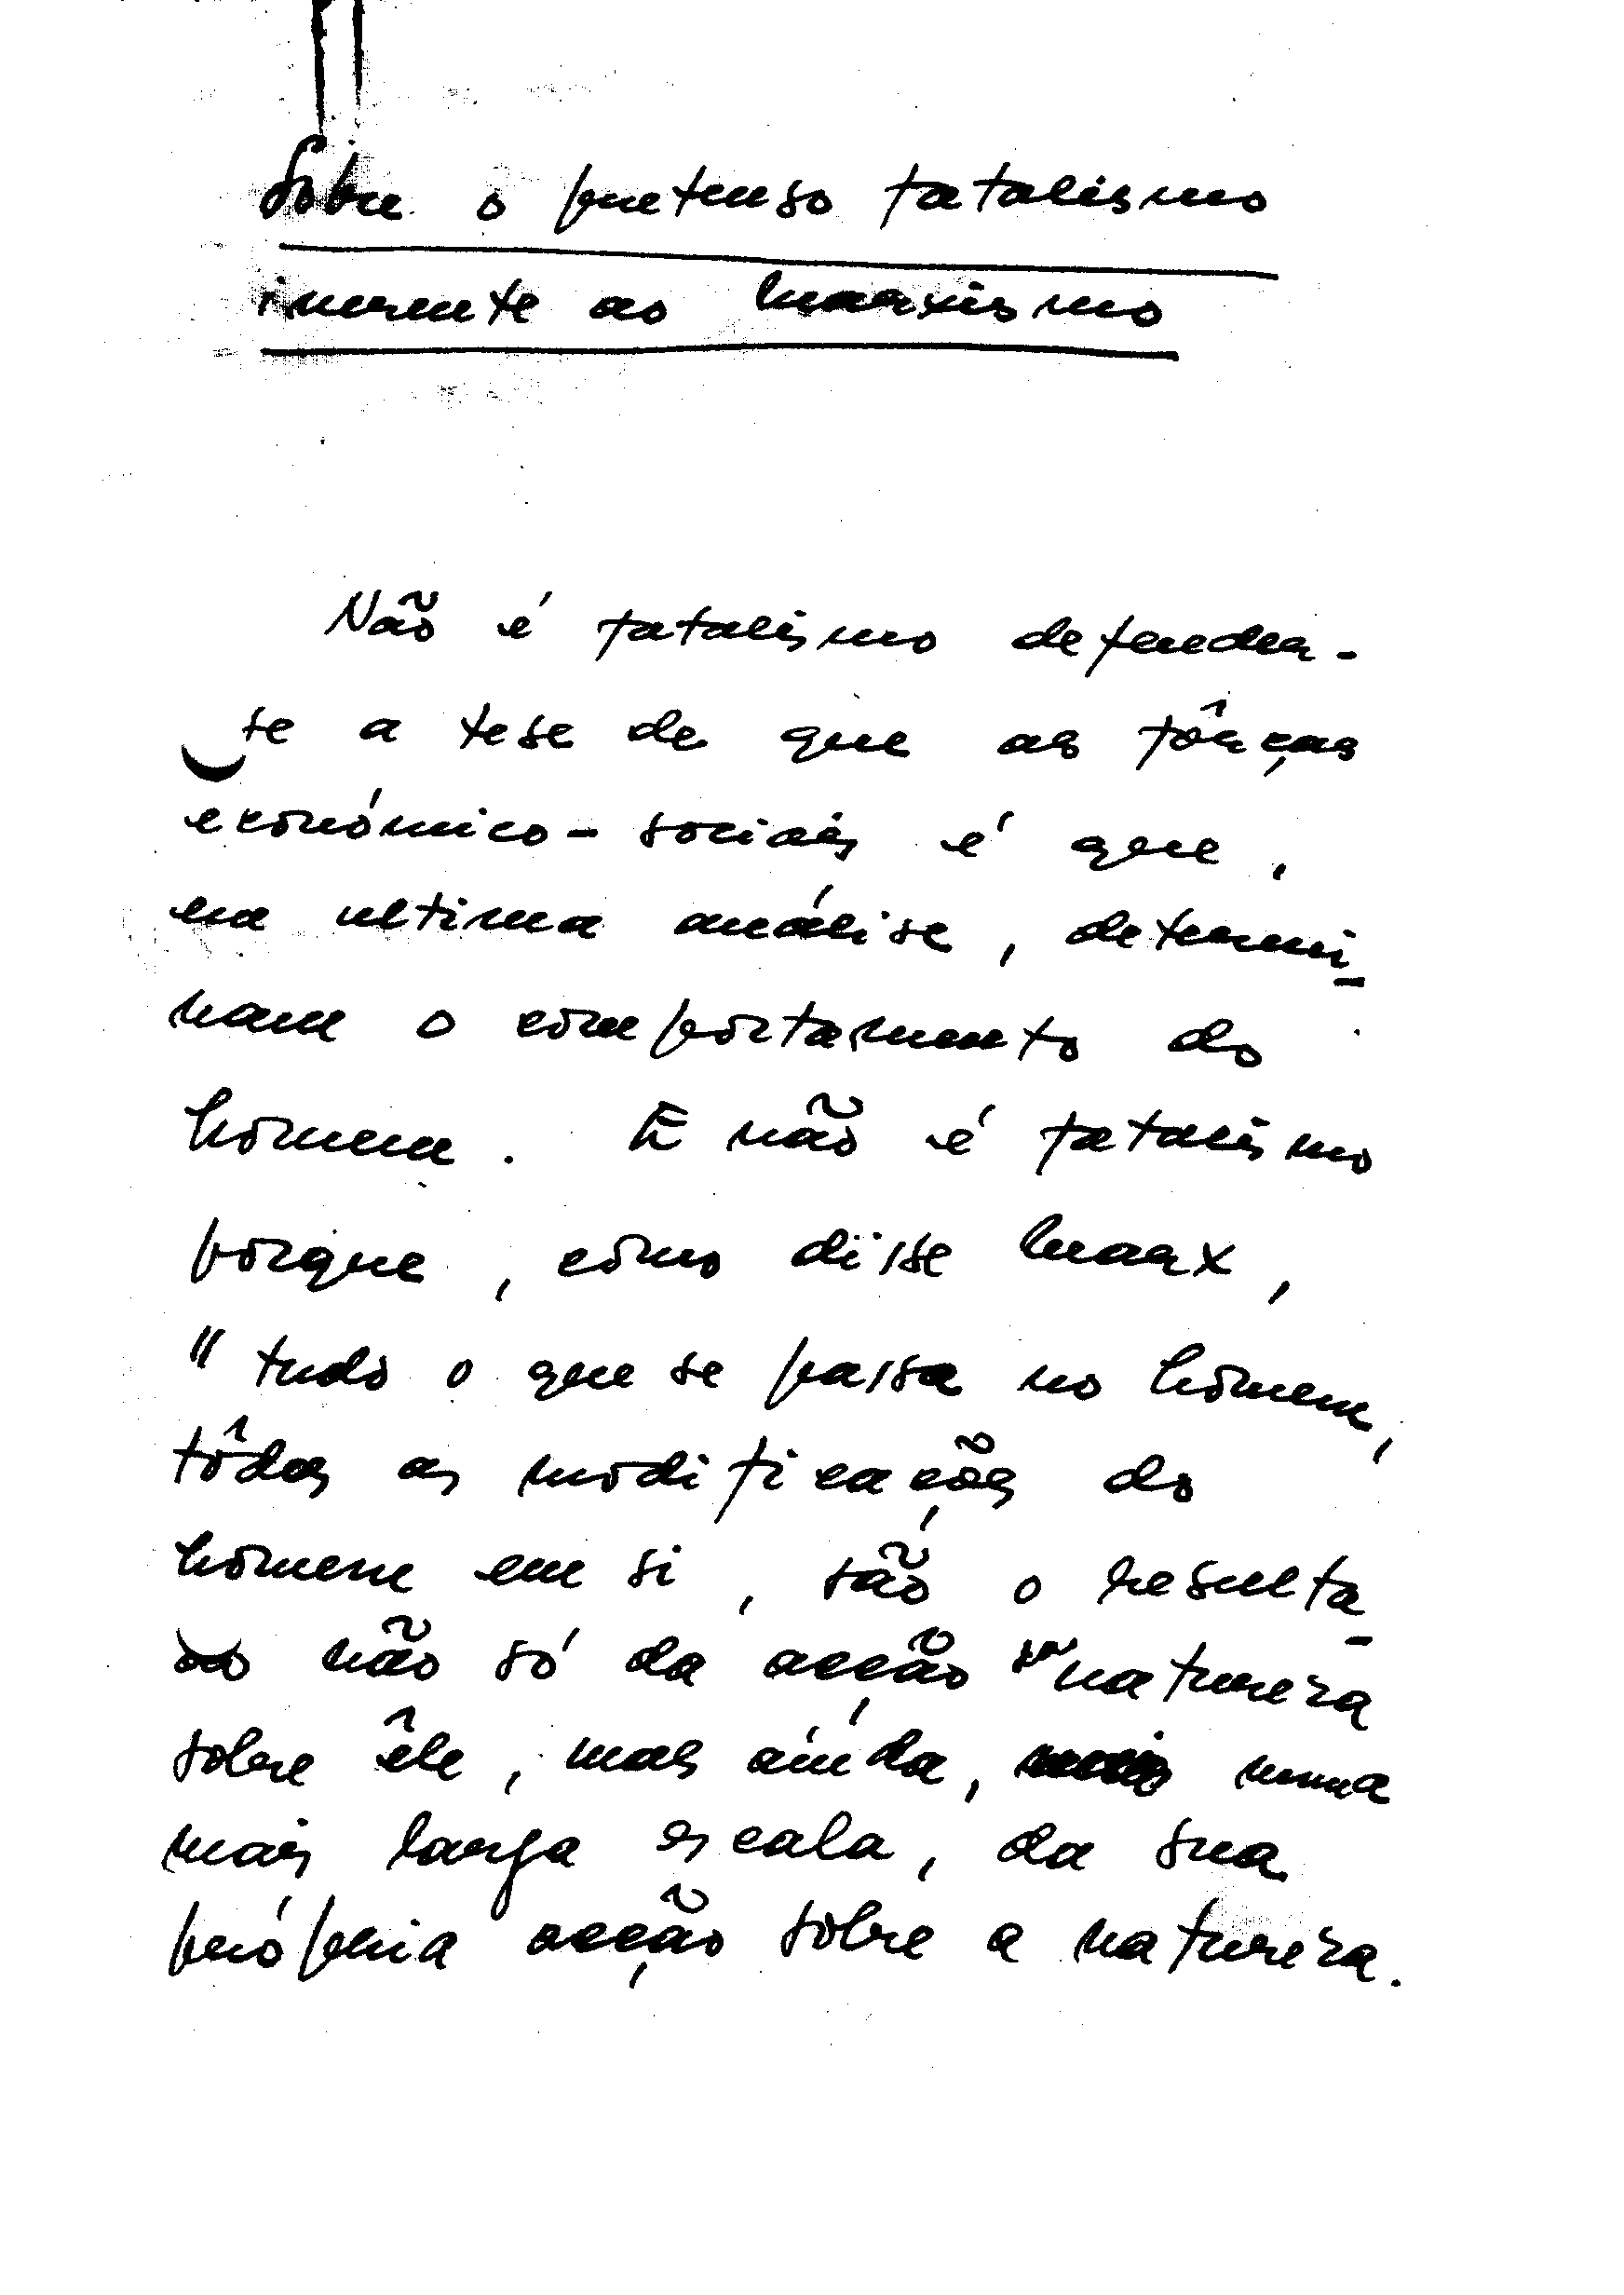 Sobre o pretenso fatalismo
inerente ao marxismo
Não é fatalismo defender-
se a tese de que as fôrças
económico-sociais é que,
em ultima análise, determi-
nam o comportamento do
homem. E não é fatalismo
porque, como disse Marx,
"tudo o que se passa no homem,
tôdas as modificações do
homem em si, são o resulta-
do não só da acção da natureza
sobre êle, mas ainda, numa
mais larga escala, da sua
própria acção sobre a natureza.